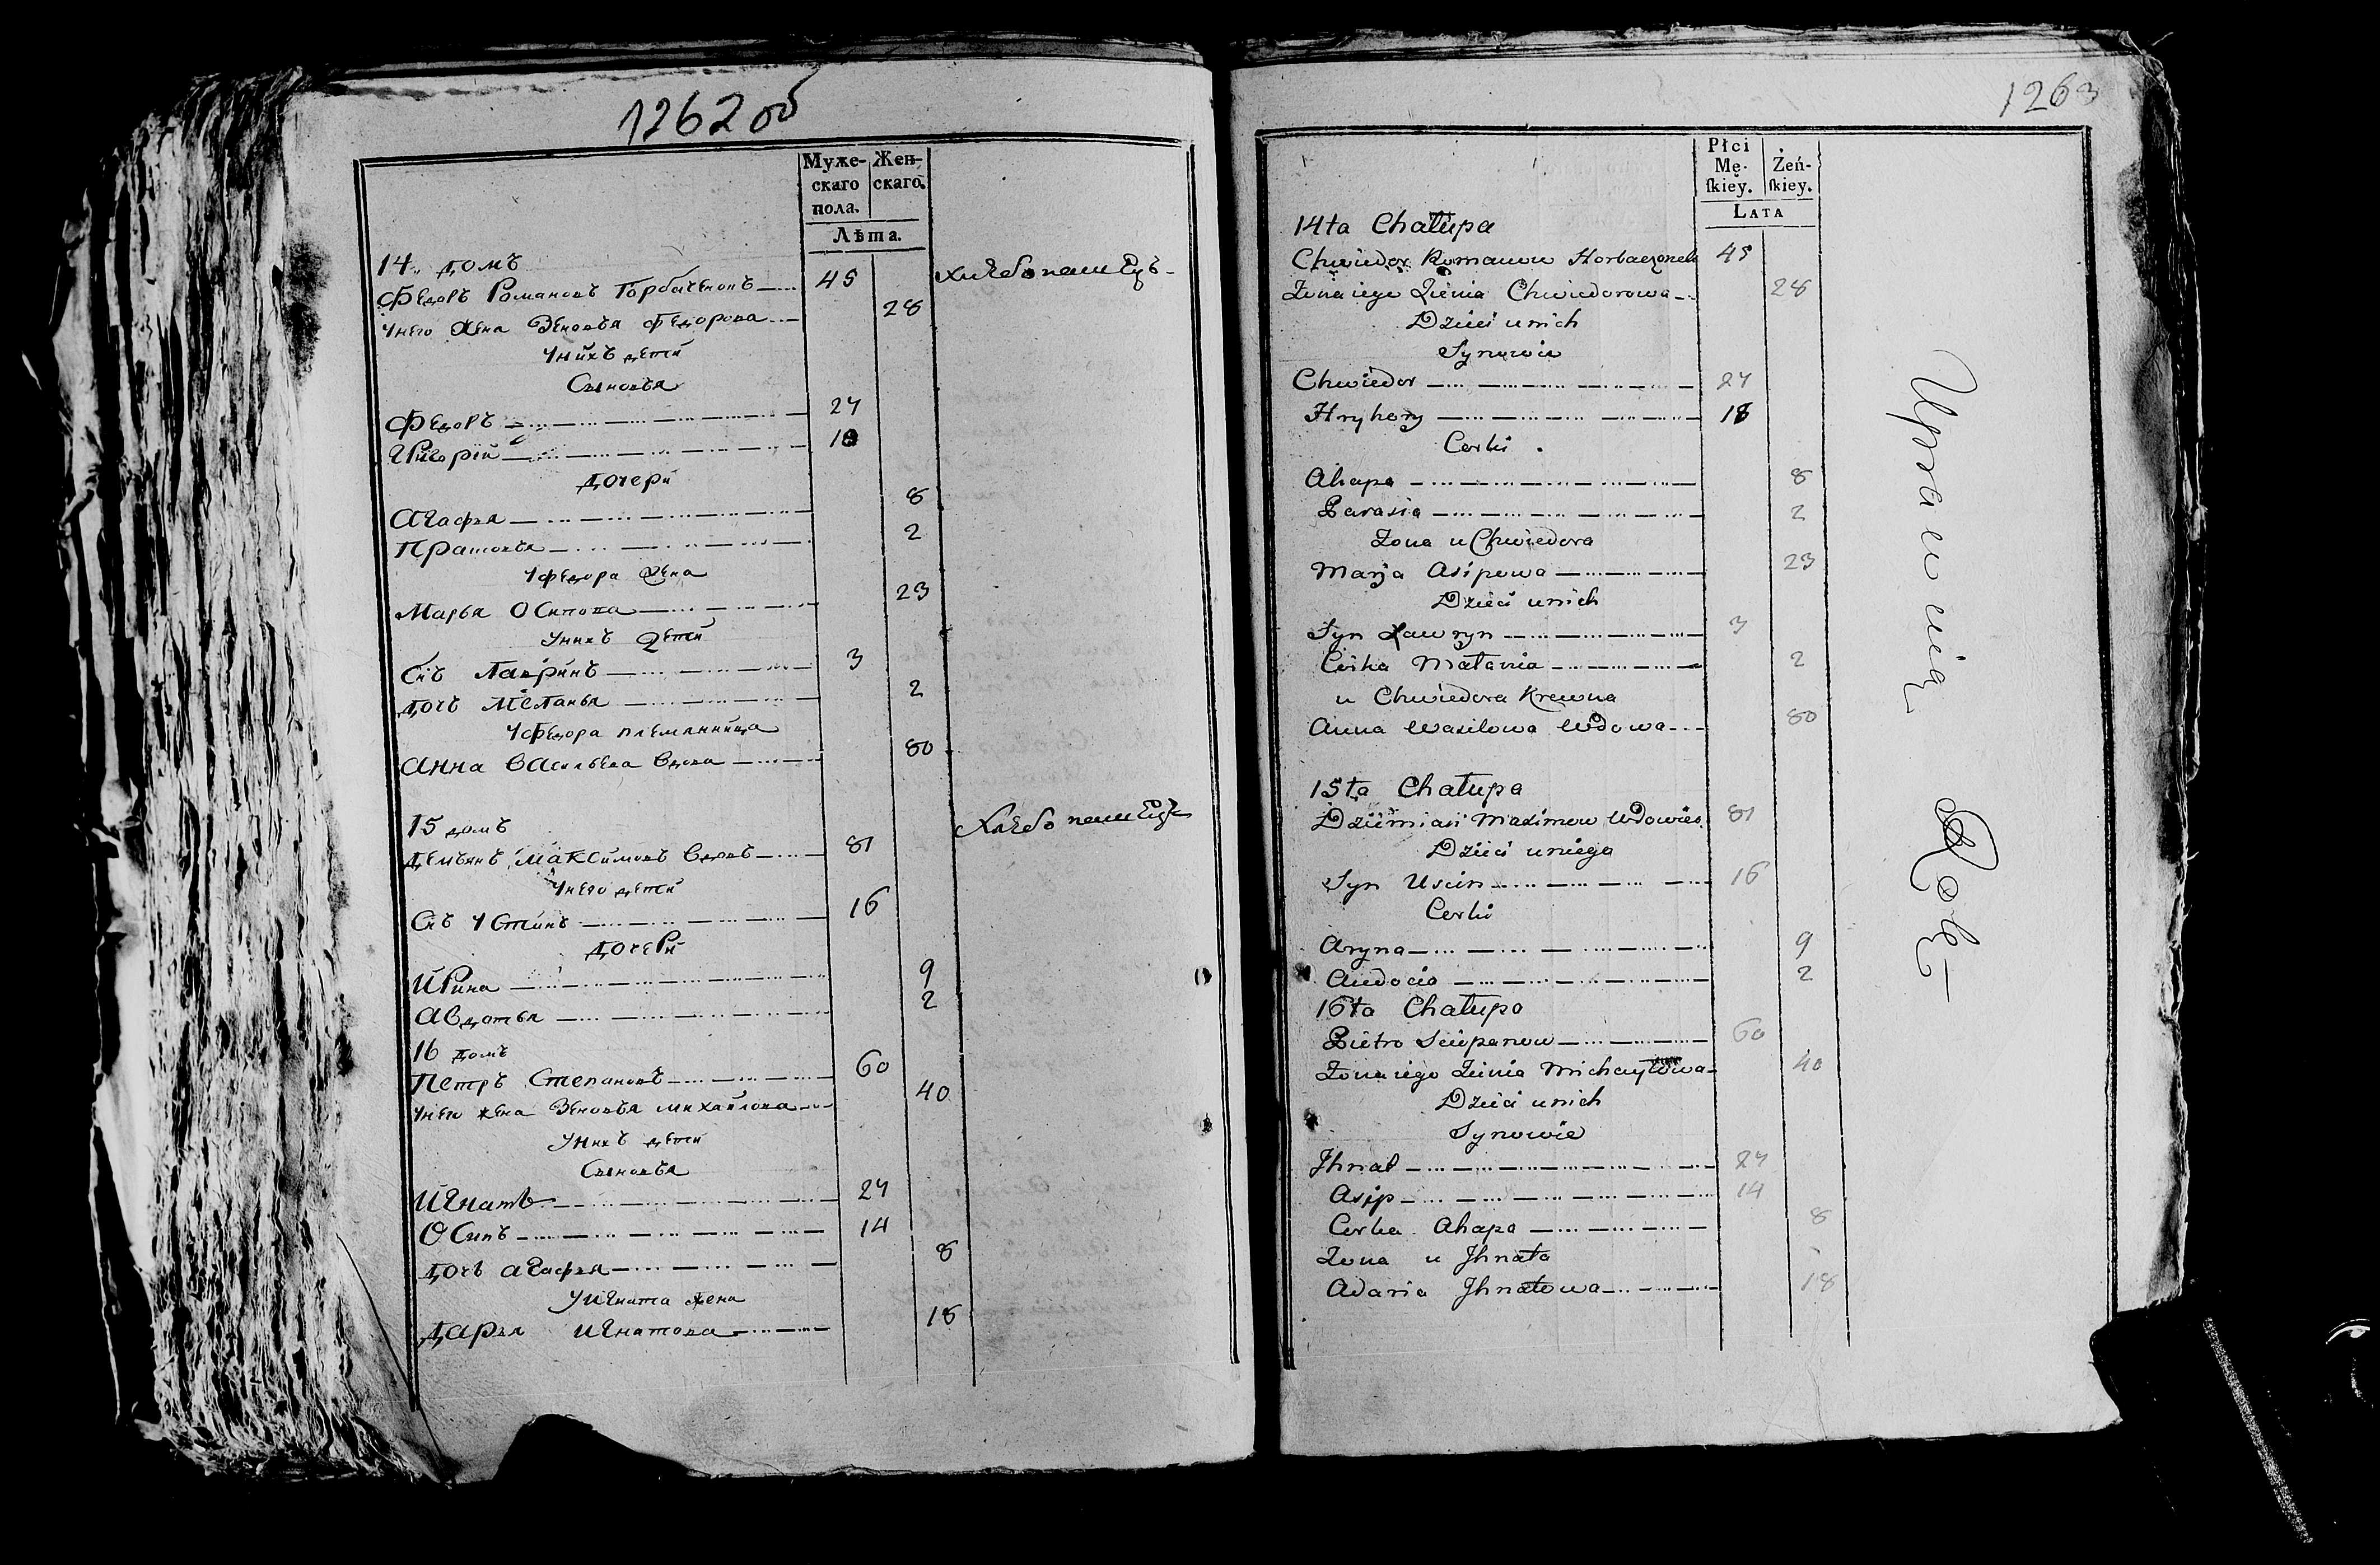 1262 об
Муже-
скаго
пола.
Жен-
скаго.
Лѣта.
14. домъ
Федоръ Романовъ Горбаченокъ 45 хлебопашецъ
У него жена Зеновья Федорова 28
У нихъ дети
Сыновья
Федоръ 27
Григорий 18
дочери
Агафья 8
Прасковья 2
У Федора жена
Марья Осипова 23
У нихъ дети
Снъ Лавринъ 3
дочь Меланья 2
У Федора племянница
Анна Васильева вдова 80
15 домъ
Демьянъ Максимовъ вдовъ 81 хлебопашецъ
У него дети
Снъ Устинъ 16
дочери
Ирина 9
Авдотья 2
16 домъ
Петръ Степановъ 60
У него жена Зеновья Михайлова 40
У нихъ дети
Сыновья
Игнатъ 27
Осипъ 14
дочь Агафья 8
У Игната жена
Дарья Игнатова 18
1263
Płci
Mę-
ſkiey.
Żeń-
ſkiey.
LATA
14ta Chałupa
Chwiedor Romanow Horbaczonek 45
Żona iego Zienia Chwiedorowa 28
Dzieci u nich
Synowie
Chwiedor 27
Hryhory 18
Corki
Ahapa 8
Parasia 2
Żona u Chwiedora
Marja Asipowa 23
Dzieci u nich
Syn Ławryn 3
Corka Małania 2
u Chwiedora Krewna
Anna Wasilowa Wdowa 80
15ta Chałupa
Dziemian Maximow Wdowiec 81
Dzieci u niego
Syn Uscin 16
Corki
Aryna 9
Audocia 2
16ta Chałupa
Pietro Sciepanow 60
Żona iego Zienia Michayłowa 40
Dzieci u nich
Synowie
Jhnat 27
Asip 14
Corka Ahapa 8
Żona u Jhnata
Adaria Jhnatowa 18
Uprawuią Rolę